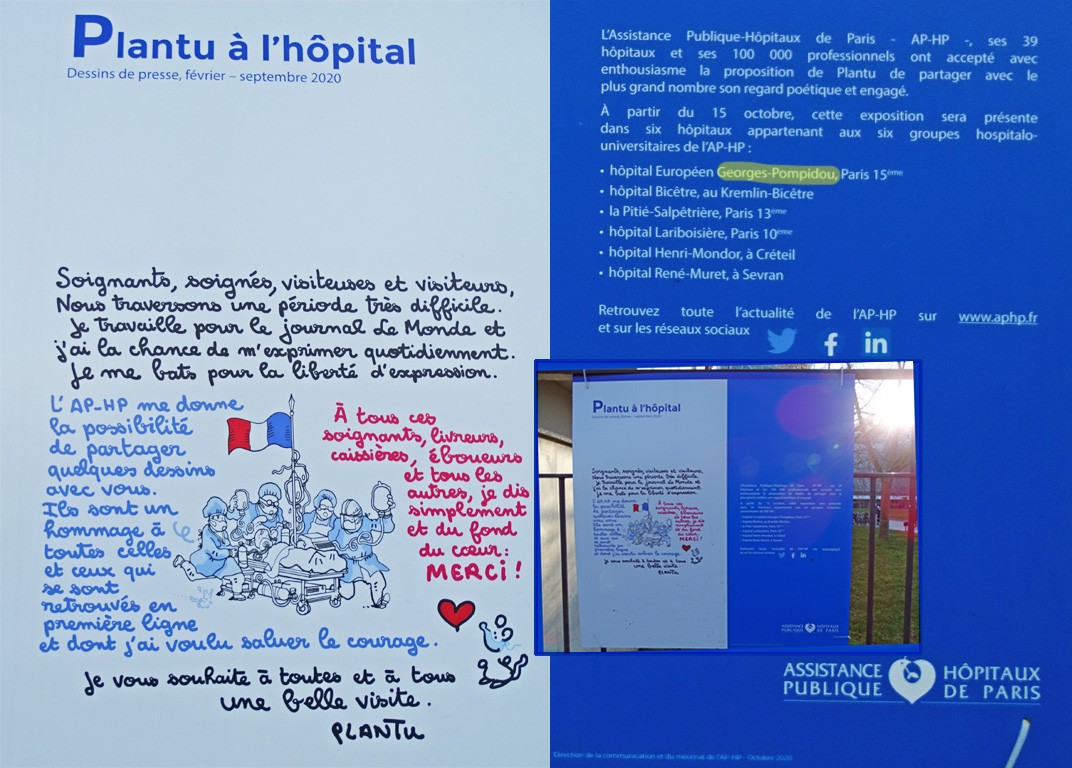 Plantu à l'hôpital
Dessins de presse, février – septembre 2020
Soignants, soignés, visiteuses et visiteurs,
Nous traversons une période très difficile.
Je travaille pour le journal Le Monde et
j'ai la chance de m'exprimer quotidiennement.
Je me bats pour la liberté d'expression.
L'AP-HP me donne
la possibilité
de partager
quelques dessins
avec vous.
Ils sont un
hommage à
toutes celles
et ceux qui
se sont
retrouvés en
première ligne
et dont j'ai voulu saluer le courage.
À tous ces
soignants, livreurs,
caissières, éboueurs
et tous les
autres, je dis
simplement
et du fond
du cœur :
MERCI !
Je vous souhaite à toutes et à tous
une belle visite.
PLANTU
L'Assistance Publique-Hôpitaux de Paris - AP-HP -, ses 39
hôpitaux et ses 100 000 professionnels ont accepté avec
enthousiasme la proposition de Plantu de partager avec le
plus grand nombre son regard poétique et engagé.
À partir du 15 octobre, cette exposition sera présente
dans six hôpitaux appartenant aux six groupes hospitalo-
universitaires de l'AP-HP :
• hôpital Européen Georges-Pompidou, Paris 15ème
• hôpital Bicêtre, au Kremlin-Bicêtre
• la Pitié-Salpêtrière, Paris 13ème
• hôpital Lariboisière, Paris 10ème
• hôpital Henri-Mondor, à Créteil
• hôpital René-Muret, à Sevran
Retrouvez toute l'actualité de l'AP-HP sur www.aphp.fr
et sur les réseaux sociaux
f
in
Plantu à l'hôpital
Dessins de presse, février – septembre 2020
Soignants, soignés, visiteuses et visiteurs,
Nous traversons une période très difficile.
Je travaille pour le journal Le Monde et
j'ai la chance de m'exprimer quotidiennement.
Je me bats pour la liberté d'expression.
MERCI !
Je vous souhaite à toutes et à tous
une belle visite.
PLANTU
ASSISTANCE
PUBLIQUE
HÔPITAUX
DE PARIS
ASSISTANCE
PUBLIQUE
HÔPITAUX
DE PARIS
Direction de la communication et du mécénat de l'AP-HP - Octobre 2020